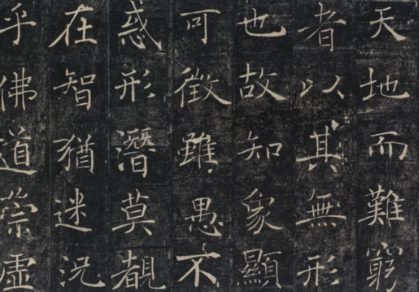 天地而難窮
者以其無形
也故知象顯
可徵雖愚不
惑形潛莫覩
在智猶迷況
乎佛道崇虛